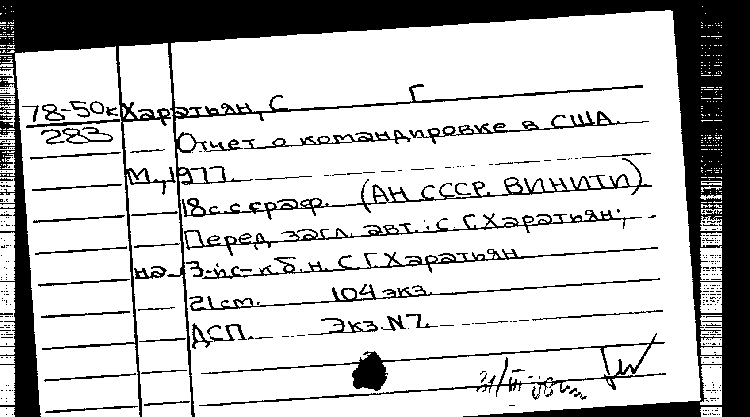 78-50к Харатьян, С Г
283
Отчет о командировке в США.
М., 1977.
18с. с граф. (АН СССР. ВИНИТИ)
Перед загл. авт.: С. Г. Харатьян;
на 3-й с- к б. н. С Г. Харатьян
21 см. 104 экз.
ДСП. Экз. N 7.